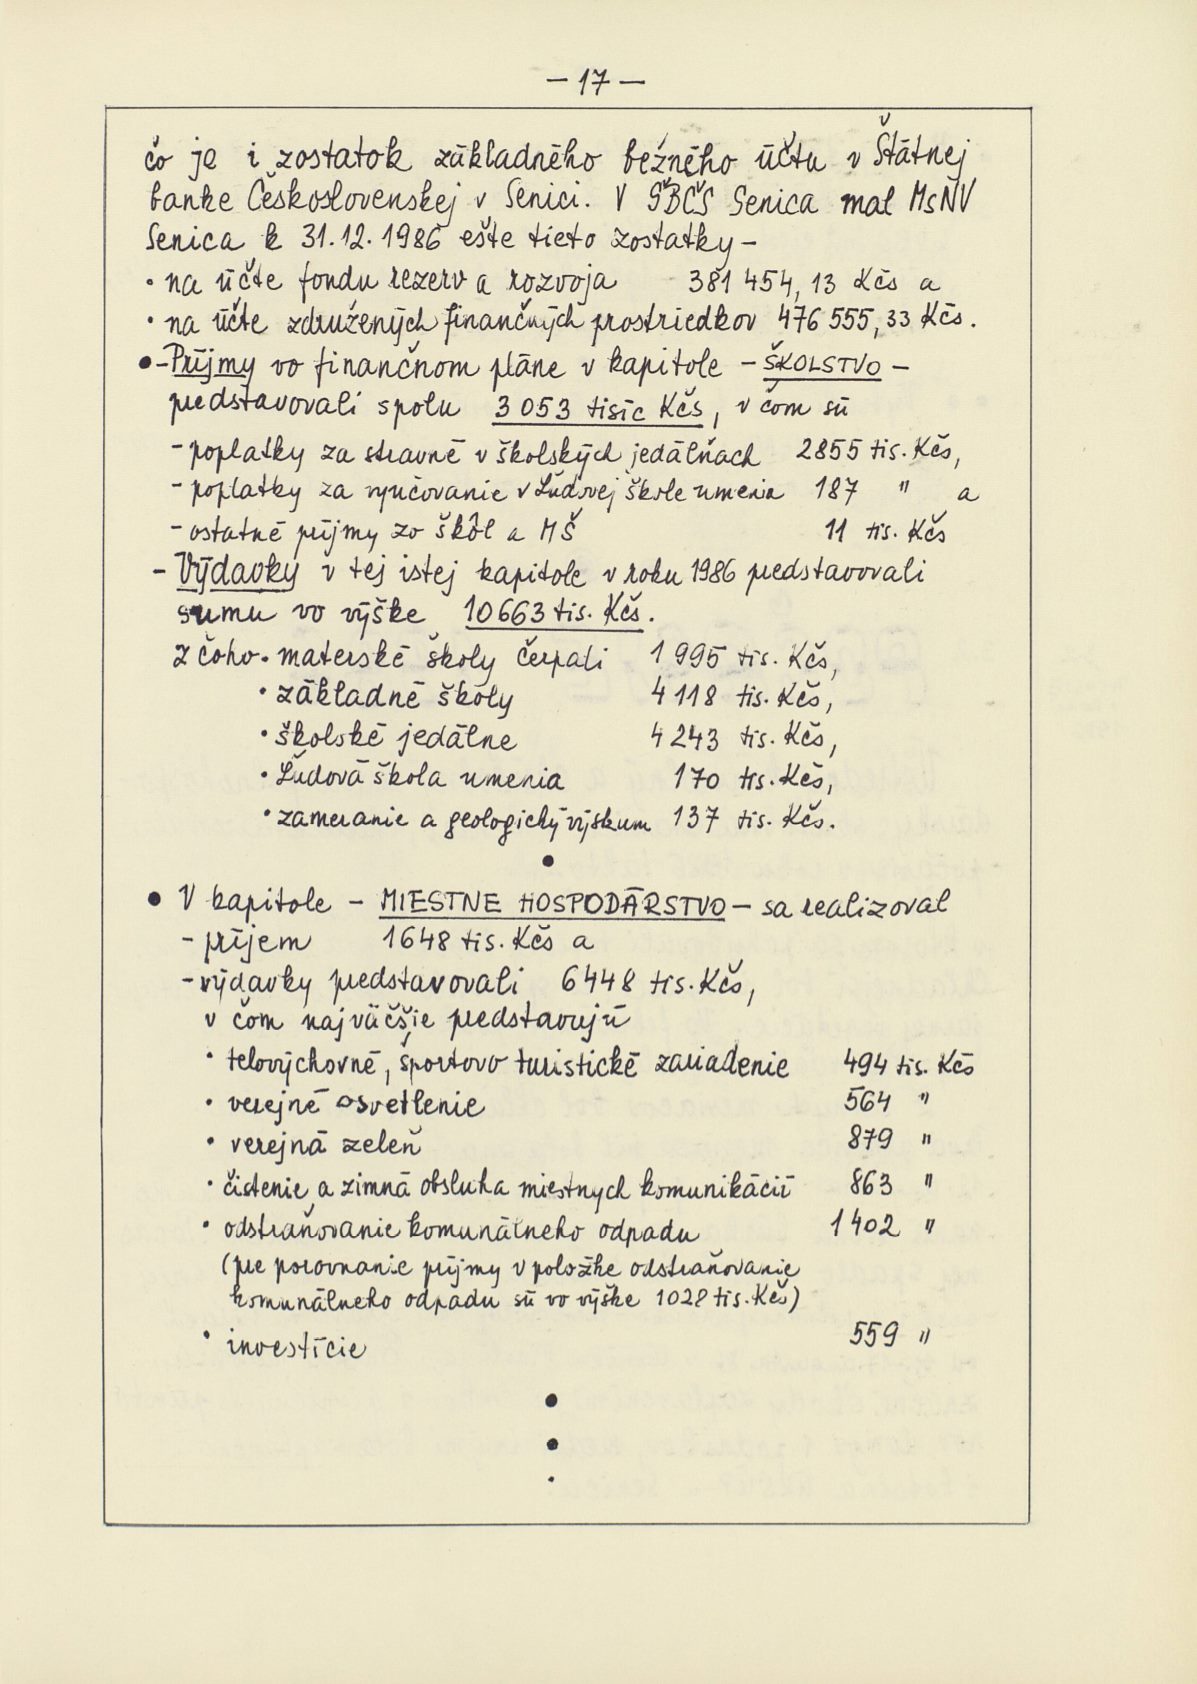 — 17 —
čo je i zostatok základného bežného účtu v Štátnej
banke Československej v Senici. V ŠBČS Senica mal MsNV
Senica k 31.12.1986 ešte tieto zostatky –
• na účte fondu rezerv a rozvoja 381 454,13 Kčs a
• na účte združených finančných prostriedkov 476 555,33 Kčs.
• – Príjmy vo finančnom pláne v kapitole – ŠKOLSTVO –
predstavovali spolu 3 053 tisíc Kčs, v čom sú
– poplatky za stravné v školských jedálňach 2855 tis. Kčs,
– poplatky za vyučovanie v Ľudovej škole umenia 187 " a
– ostatné príjmy zo škôl a MŠ 11 tis. Kčs
– Výdavky v tej istej kapitole v roku 1986 predstavovali
sumu vo výške 10 663 tis. Kčs.
z čoho • materské školy čerpali 1 995 tis. Kčs,
• základné školy 4 118 tis. Kčs,
• školské jedálne 4 243 tis. Kčs,
• Ľudová škola umenia 170 tis. Kčs,
• zameranie a geologický výskum 137 tis. Kčs.
•
• V kapitole – MIESTNE HOSPODÁRSTVO – sa realizoval
– príjem 1648 tis. Kčs a
– výdavky predstavovali 6448 tis. Kčs,
v čom najväčšie predstavujú
• telovýchovné, športovo turistické zariadenie 494 tis. Kčs
• verejné osvetlenie 564 "
• verejná zeleň 879 "
• čistenie a zimná obsluha miestnych komunikácií 863 "
• odstraňovanie komunálneho odpadu 1 402 "
(pre porovnanie príjmy v položke odstraňovanie
komunálneho odpadu sú vo výške 1028 tis. Kčs)
• investície 559 "
•
•
•